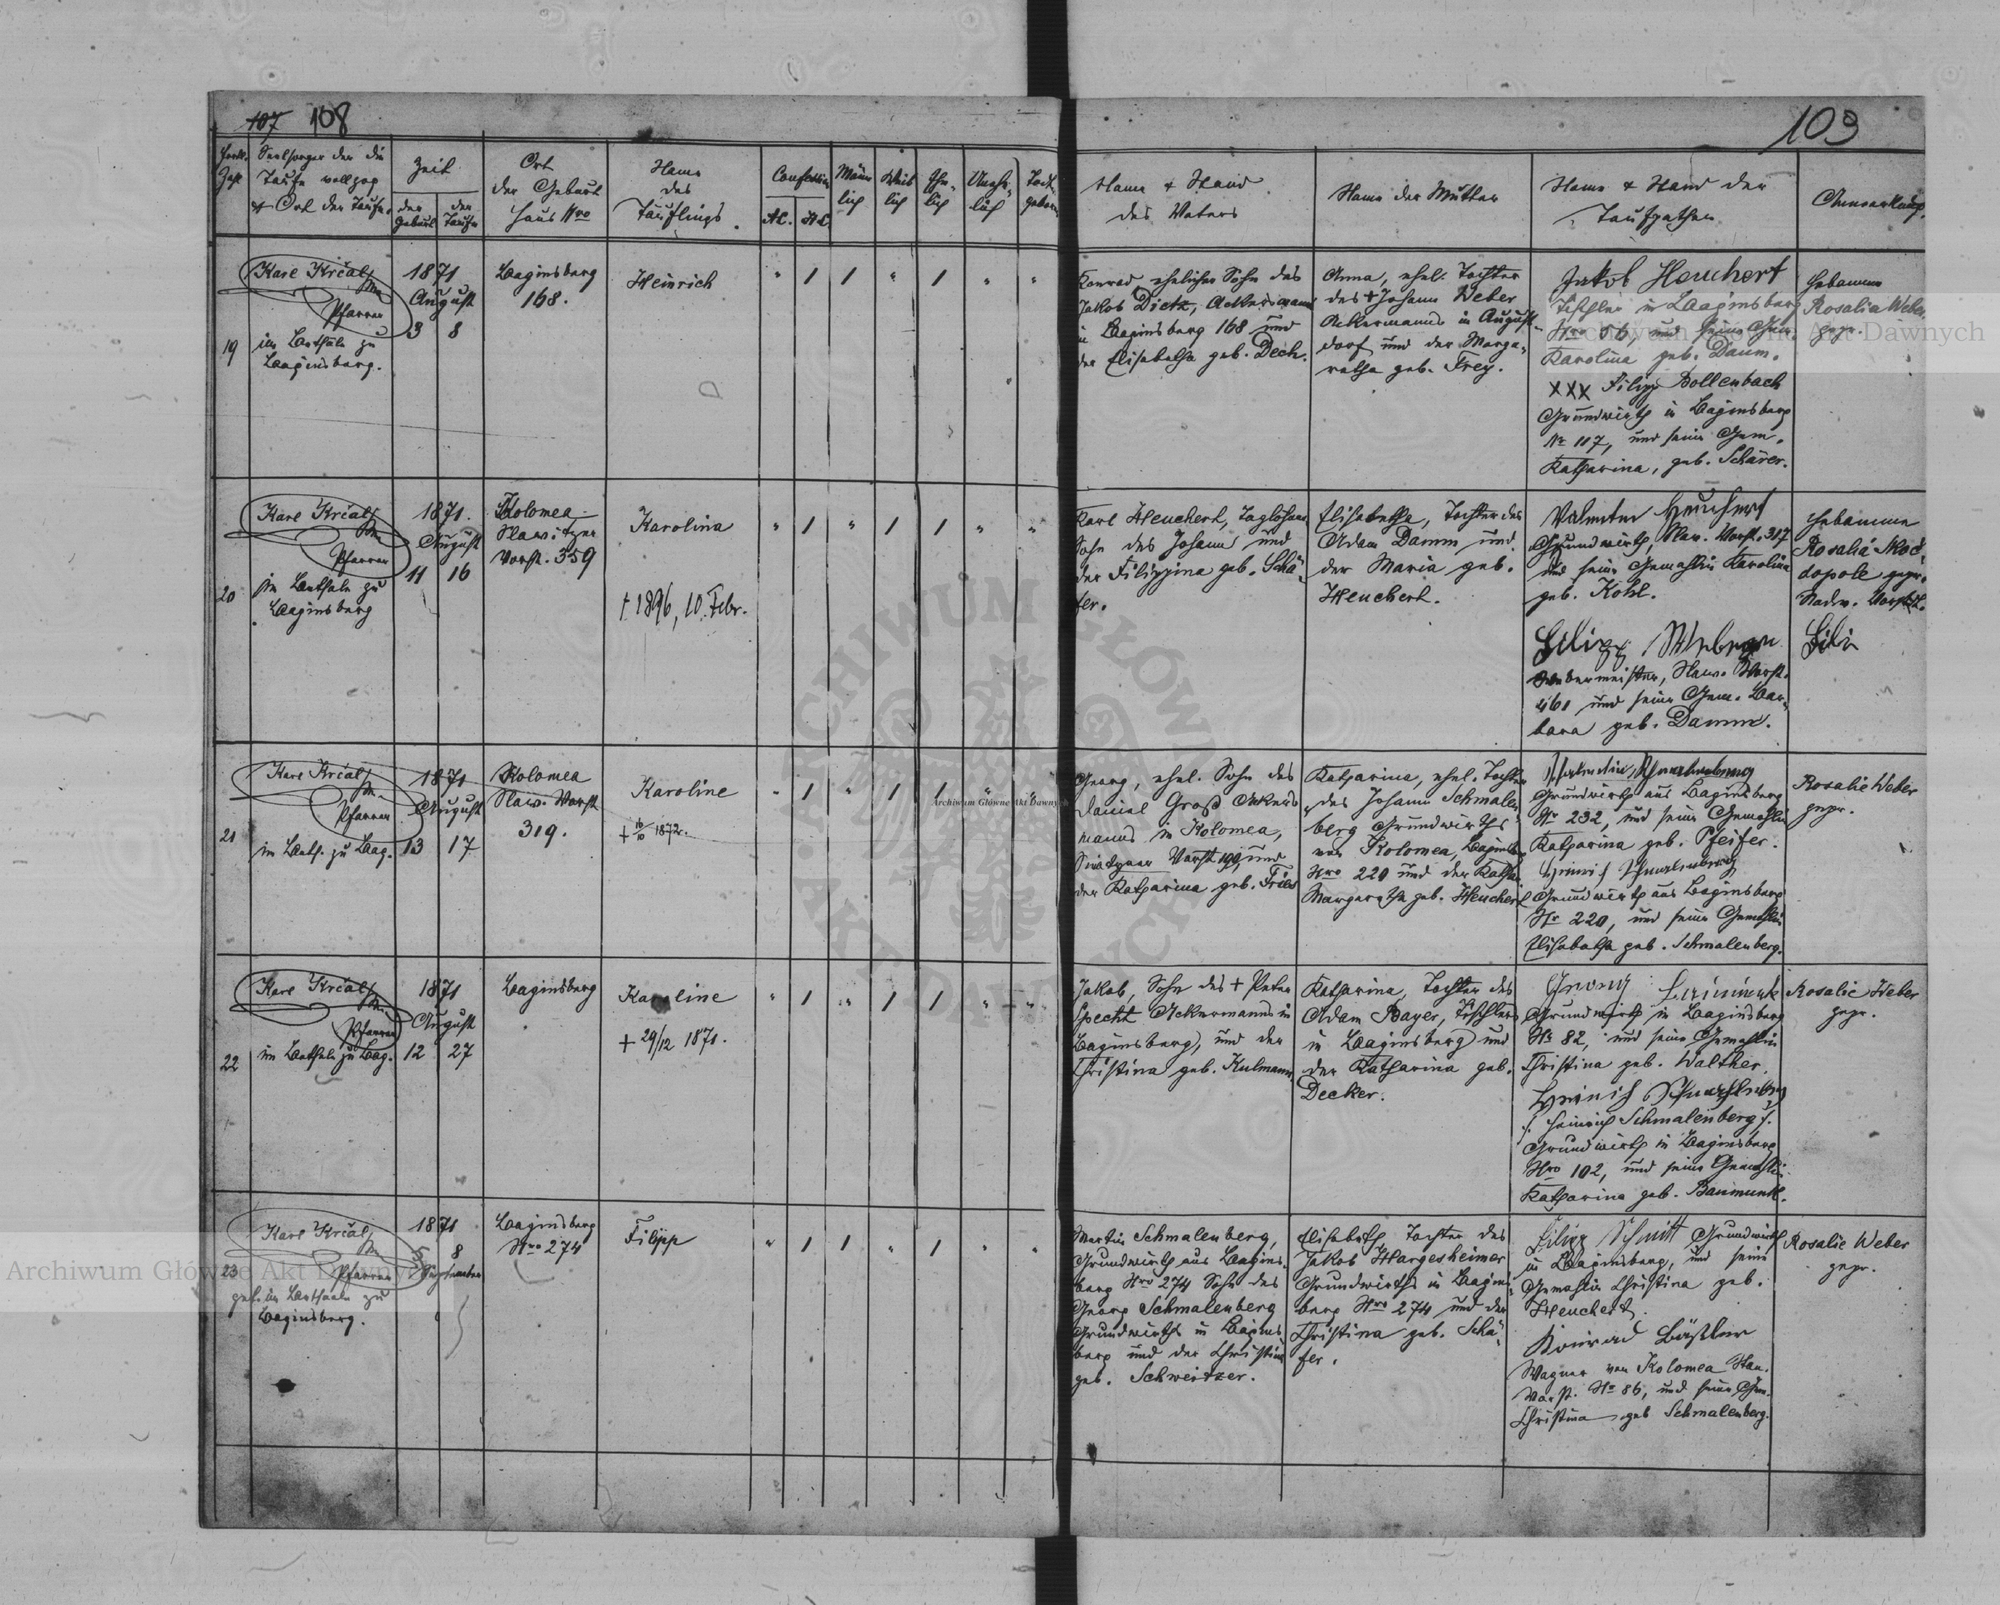 107 108
103
Seelsorger der die
Taufe vollzog
& Ort der Taufe.
Zeit
der Geburt
der Taufe
Ort
der Geburt
Haus Nro
Name
des
Täuflings.
Confession
A.C. H.C.
Männlich
Weiblich
Ehelich
Unehelich
Todtgeboren
Name & Stand
des Vaters
Name der Mutter
Name & Stand der
Taufpathen
19
Karl Krčal
Pfarrer
im Bethale zu
Baginsberg.
1871
August
3 8
Baginsberg
168.
Heinrich
" / / " / " "
Konrad, ehelicher Sohn des
Jakob Dietz, Ackermanns
in Baginsberg 168 und
der Elisabetha geb. Dech.
Anna, ehel. Tochter
des + Johann Weber
Ackermanns in August-
dorf und der Marga-
retha geb. Frey.
Jakob Heuchert
Tischler in Baginsberg
Nro 56, und seine Gem.
Karolina geb. Daum.
XXX Filipp Bollenbach
Grundwirth in Baginsberg
No 117, und seine Gem.
Katharina, geb. Schärer.
Hebamme
Rosalia Weber
gepr.
20
Karl Krčal
Pfarrer
im Bethale zu
Baginsberg
1871.
August
11 16
Kolomea
Slawitzer
Vorst. 359
Karolina
† 1896, 10. Febr.
" / " / / " "
Karl Heuchert, Taglöhner
Sohn des Johann und
der Filippina geb. Schä-
fer.
Elisabetha, Tochter des
Adam Damm und
der Maria geb.
Heuchert.
Valentin Heuchert
Grundwirth, Slaw. Vorst. 317
und seine Gemahlin Karolina
geb. Kohl.
Filipp
Webermeister, Slaw. Vorst.
461 und seine Gem. Bar-
bara geb. Damm.
Hebamme
dopole gepr.
Nadw. Vorst.
21
Karl Krčal
Pfarrer
im Beth. zu Bag.
1871
August
13 17
Kolomea
Slaw. Vorst
319.
Karoline
+ 16/10 1872.
" / " / / " "
Georg, ehel. Sohn des
Daniel Groß Acker-
manns in Kolomea,
Vorst 190, und
der Katharina geb. Fries
Katharina, ehel. Tochter
des Johann Schmalen-
berg Grundwirths
aus Kolomea, Baginsb.
Nro 220 und der Kath.
Margaretha geb. Heuchert
Grundwirth aus Baginsberg
Nr 232, und seine Gemahlin
Katharina geb. Pfeifer.
Heinrich Schmalenberg
Grundwirth aus Baginsberg
Nr 220, und seine Gemahlin
Elisabetha geb. Schmalenberg.
Rosalie Weber
gepr.
22
Karl Krčal
Pfarrer
im Bethale zu Bag.
1871
August
12 27
Baginsberg
Karoline
+ 29/12 1871.
" / " / / " "
Jakob, Sohn des + Peter
Specht Ackermanns in
Baginsberg, und der
Christina geb. Kulmann
Katharina, Tochter des
Adam Bayer, Tischlers
in Baginsberg und
der Katharina geb.
Decker.
Georg
Grundwirth in Baginsberg
No 82, und seine Gemahlin
Christina geb. Walther.
Heinrich Schmalenberg
/. Heinrich Schmalenberg /.
Grundwirth in Baginsberg
Nro 102, und seine Gemahlin
Katharina geb. Baumunk.
Rosalie Weber
gepr.
23
Karl Krčal
Pfarrer
get. im Bethale zu
Baginsberg.
1871
5 8
September
Baginsberg
Nro 274
Filipp
" / / " / " "
Martin Schmalenberg,
Grundwirth aus Bagins-
berg Nro 274 Sohn des
Georg Schmalenberg
Grundwirths in Bagins-
berg und der Christina
geb. Schweitzer.
Elisabeth, Tochter des
Jakob Hargesheimer
Grundwirths in Bagins-
berg Nro 274 und der
Christina geb. Schä-
fer.
Filipp Schmitt Grundwirth
in Baginsberg, und seine
Gemahlin Christina geb.
Heuchert.
Konrad Bäßler
Wagner von Kolomea Slaw.
Vorst. No 86, und seine Gem.
Christina geb Schmalenberg.
Rosalie Weber
gepr.
Archiwum Główne Akt Dawnych
Archiwum Główne Akt Dawnych
Archiwum Główne Akt Dawnych
ARCHIWUM GŁÓWNE AKT DAWNYCH